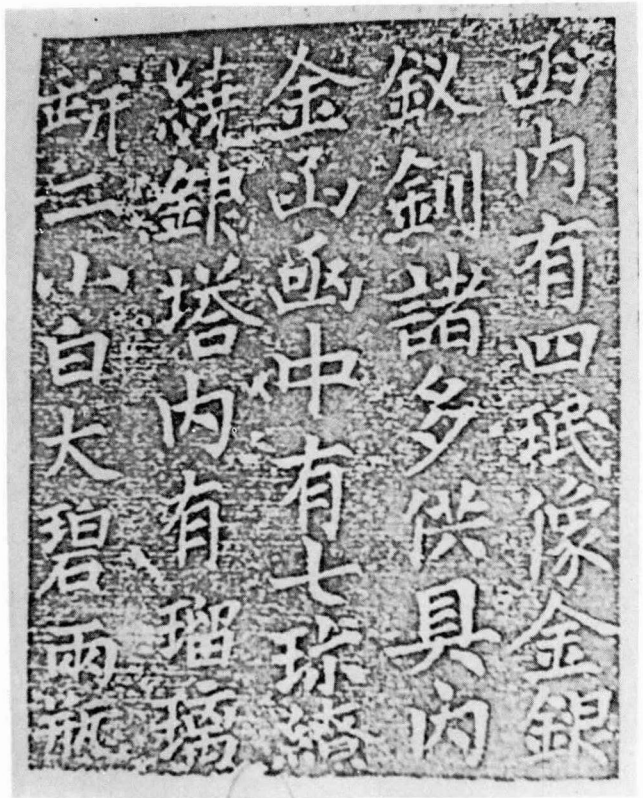 函内有四珉像金銀
釵釧諸多供具内
金函函中有七珎
繞塔内有瑠璃
缾二小白大碧兩瓶